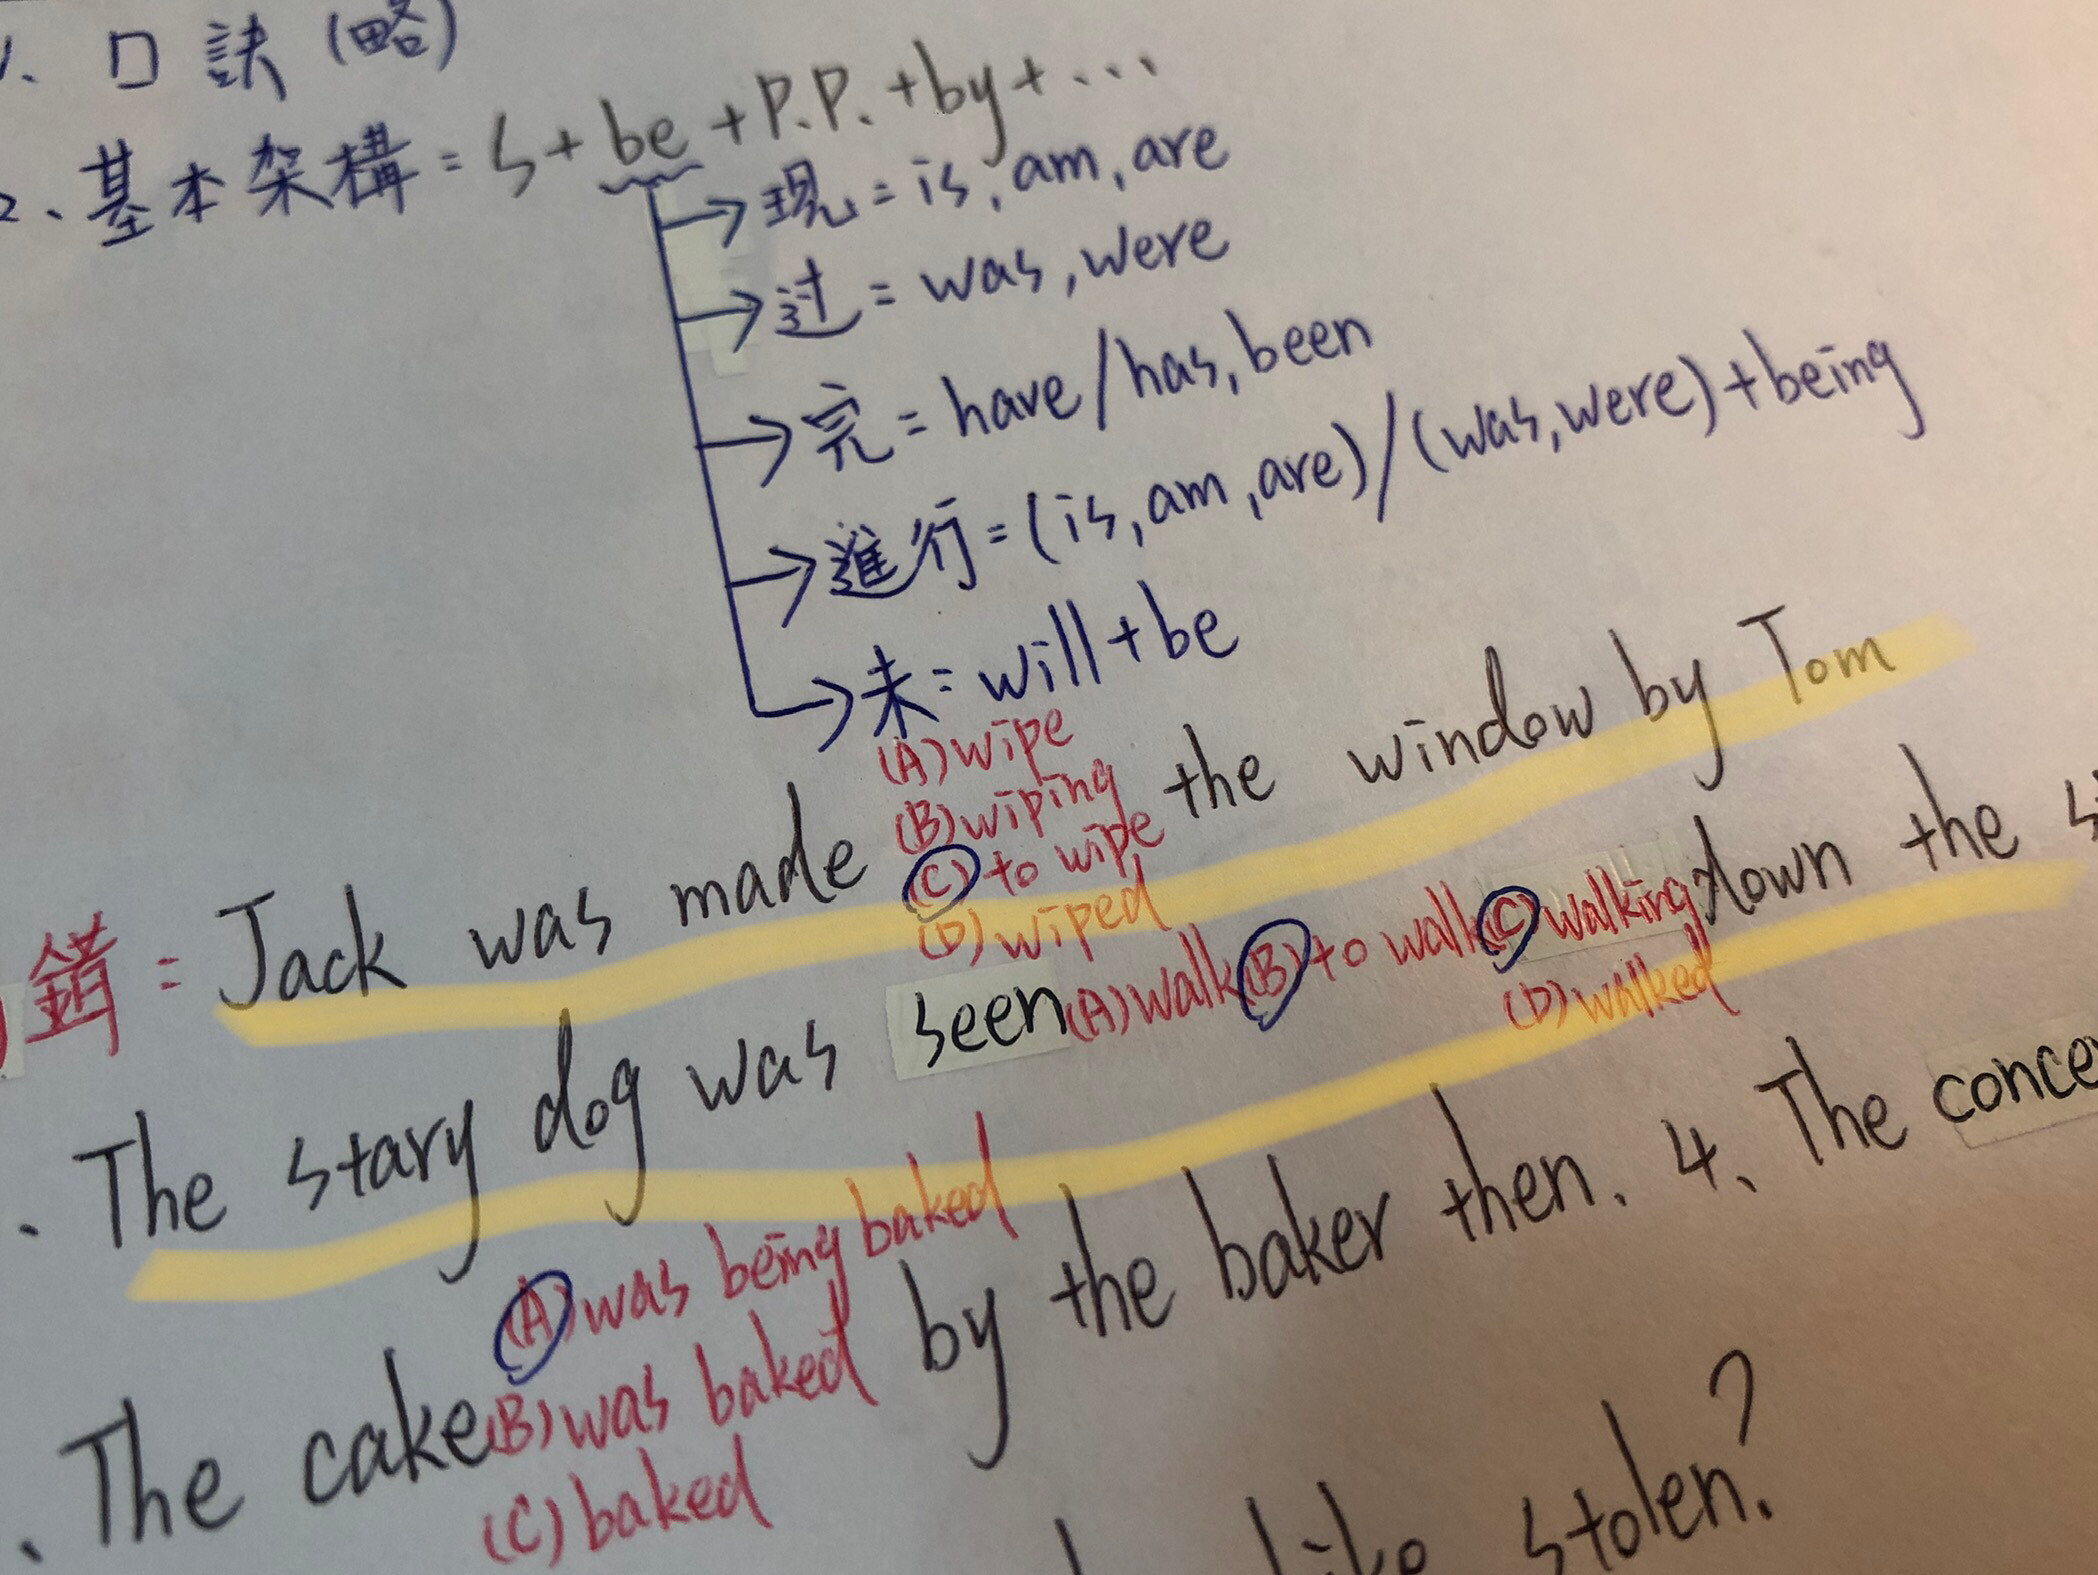 1、口訣(略)
2、基本架構=S+be+P.P.+by+...
→現=is,am,are
→过=was,were
→完=have/has,been
→進行=(is,am,are)/(was,were)+being
→未=will+be
錯:Jack was made (A)wipe (B)wiping (C)to wipe (D)wiped the window by Tom
、The stary dog was seen (A)walk (B)to walk (C)walking (D)walked down the
、The cake (A)was being baked (B)was baked (C)baked by the baker then. 4、The
stolen.?